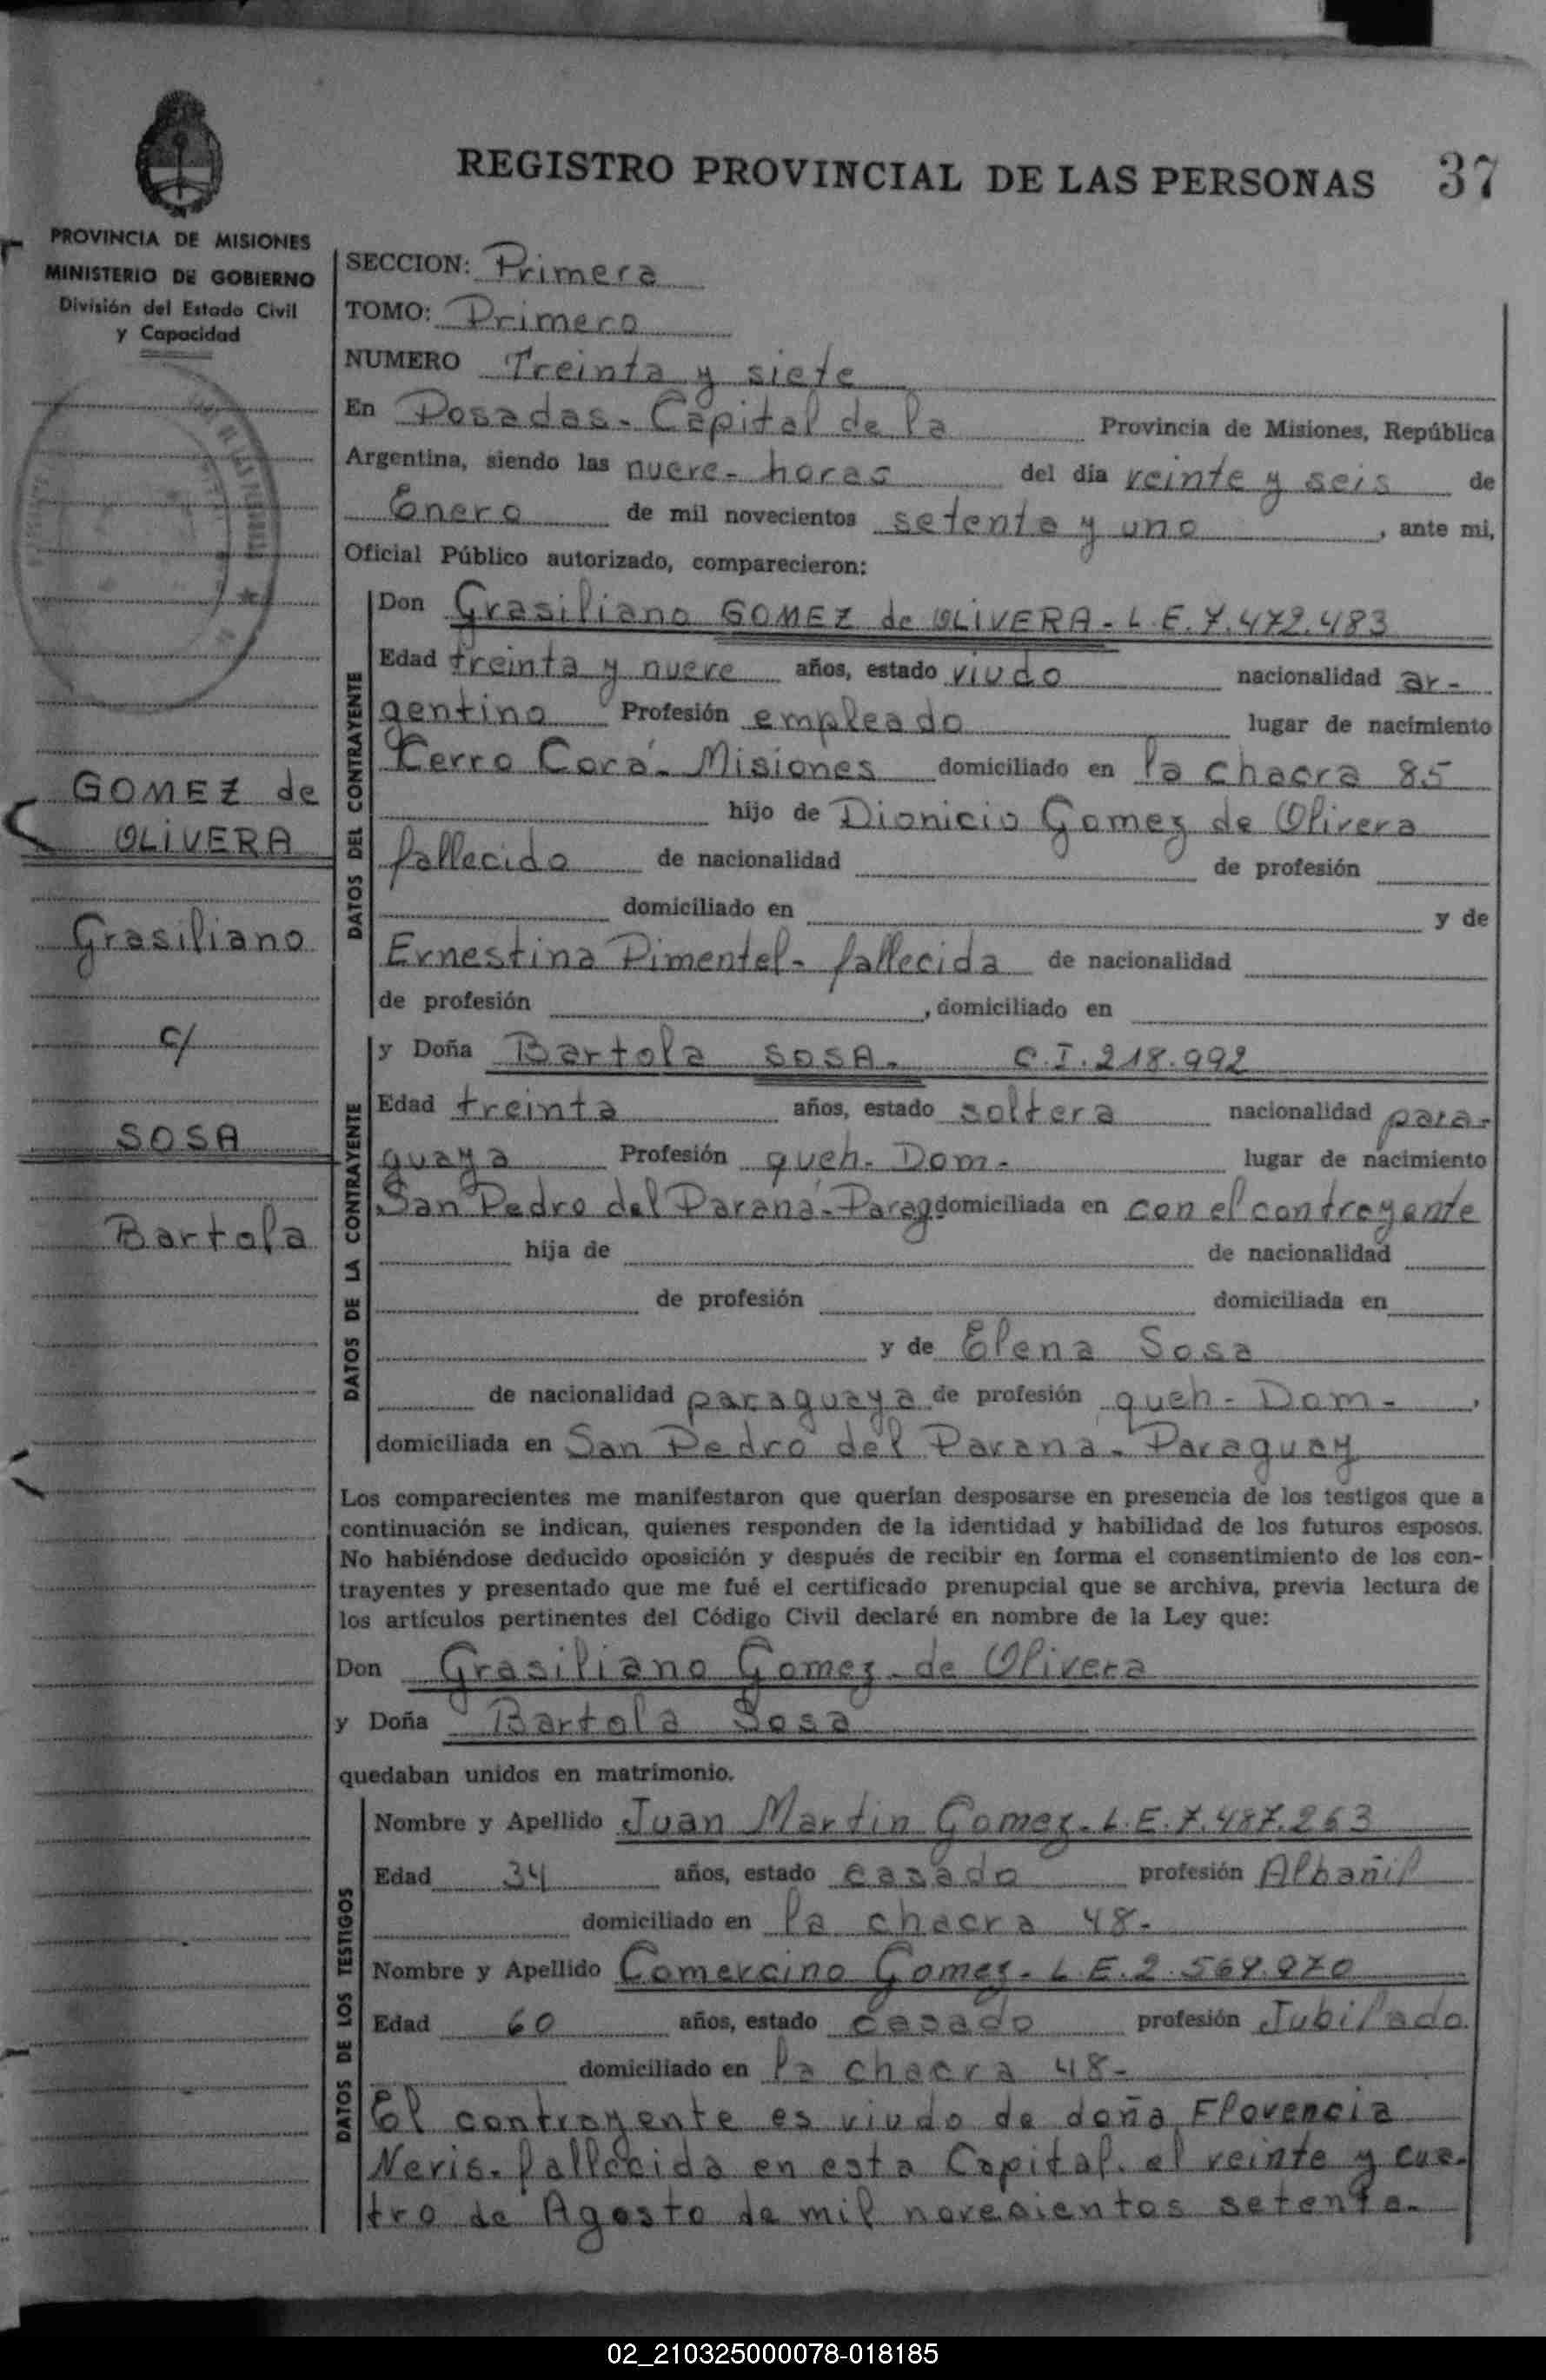 REGISTRO PROVINCIAL DE LAS PERSONAS 37
PROVINCIA DE MISIONES
MINISTERIO DE GOBIERNO
División del Estado Civil
y Capacidad
GOMEZ de
OLIVERA
Grasiliano
c/
SOSA
Bartola
SECCION: Primera
TOMO: Primero
NUMERO Treinta y siete
En Posadas - Capital de la Provincia de Misiones, República
Argentina, siendo las nueve - horas del día veinte y seis de
Enero de mil novecientos setenta y uno, ante mi,
Oficial Público autorizado, comparecieron:
DATOS DEL CONTRAYENTE
Don Grasiliano GOMEZ de OLIVERA - L.E. 7.472.483
Edad treinta y nueve años, estado viudo nacionalidad ar-
gentino Profesión empleado lugar de nacimiento
Cerro Corá - Misiones domiciliado en la chacra 85
hijo de Dionicio Gomez de Olivera
fallecido de nacionalidad de profesión
domiciliado en y de
Ernestina Pimentel - fallecida de nacionalidad
de profesión , domiciliado en
DATOS DE LA CONTRAYENTE
y Doña Bartola SOSA - C.I. 218.992
Edad treinta años, estado soltera nacionalidad para-
guaya Profesión queh. Dom. lugar de nacimiento
San Pedro del Paraná - Parag domiciliada en con el contrayente
hija de de nacionalidad
de profesión domiciliada en
y de Elena Sosa
de nacionalidad paraguaya de profesión queh - Dom - ,
domiciliada en San Pedro del Parana - Paraguay
Los comparecientes me manifestaron que querían desposarse en presencia de los testigos que a
continuación se indican, quienes responden de la identidad y habilidad de los futuros esposos.
No habiéndose deducido oposición y después de recibir en forma el consentimiento de los con-
trayentes y presentado que me fué el certificado prenupcial que se archiva, previa lectura de
los artículos pertinentes del Código Civil declaré en nombre de la Ley que:
Don Grasiliano Gomez de Olivera
y Doña Bartola Sosa
quedaban unidos en matrimonio.
DATOS DE LOS TESTIGOS
Nombre y Apellido Juan Martin Gomez - L.E. 7.487.263
Edad 34 años, estado casado profesión Albañil
domiciliado en la chacra 48 -
Nombre y Apellido Comercino Gomez - L.E. 2.569.970
Edad 60 años, estado casado profesión Jubilado
domiciliado en la chacra 48 -
El contrayente es viudo de doña Florencia
Neris - fallecida en esta Capital. el veinte y cua-
tro de Agosto de mil novecientos setenta.
02_210325000078-018185